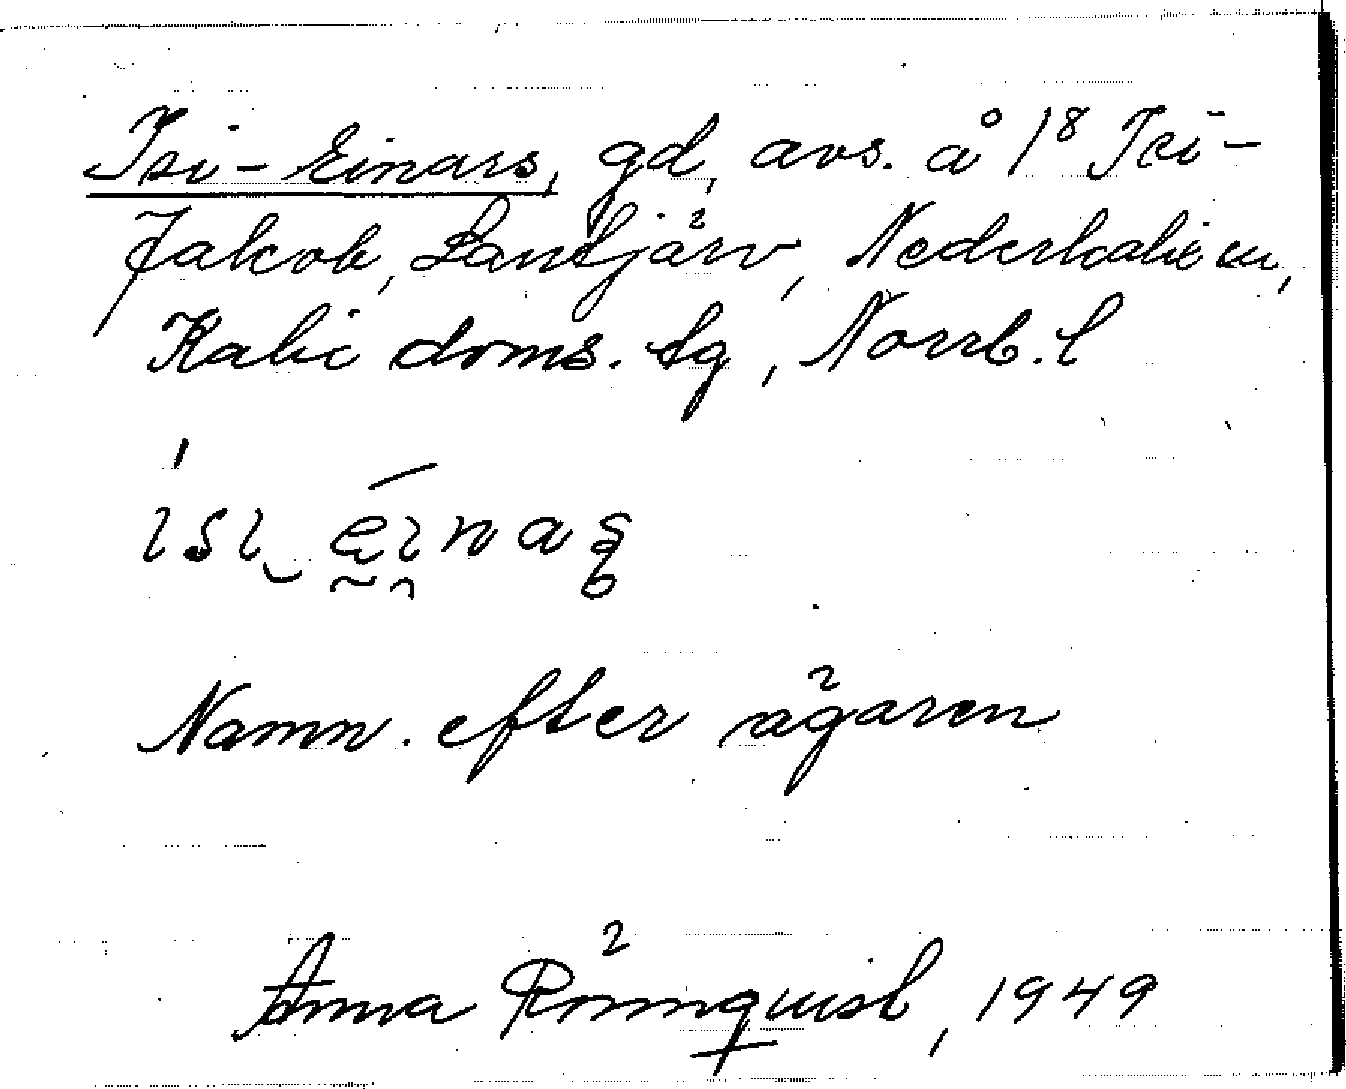 Isi-Einars, gd, avs. å 1⁸ Isi-
Jakob, Landjärv, Nederkalix sn,
Kalix doms. tg, Norrb. l
Namn. efter ägaren
Anna Rönnquist, 1949